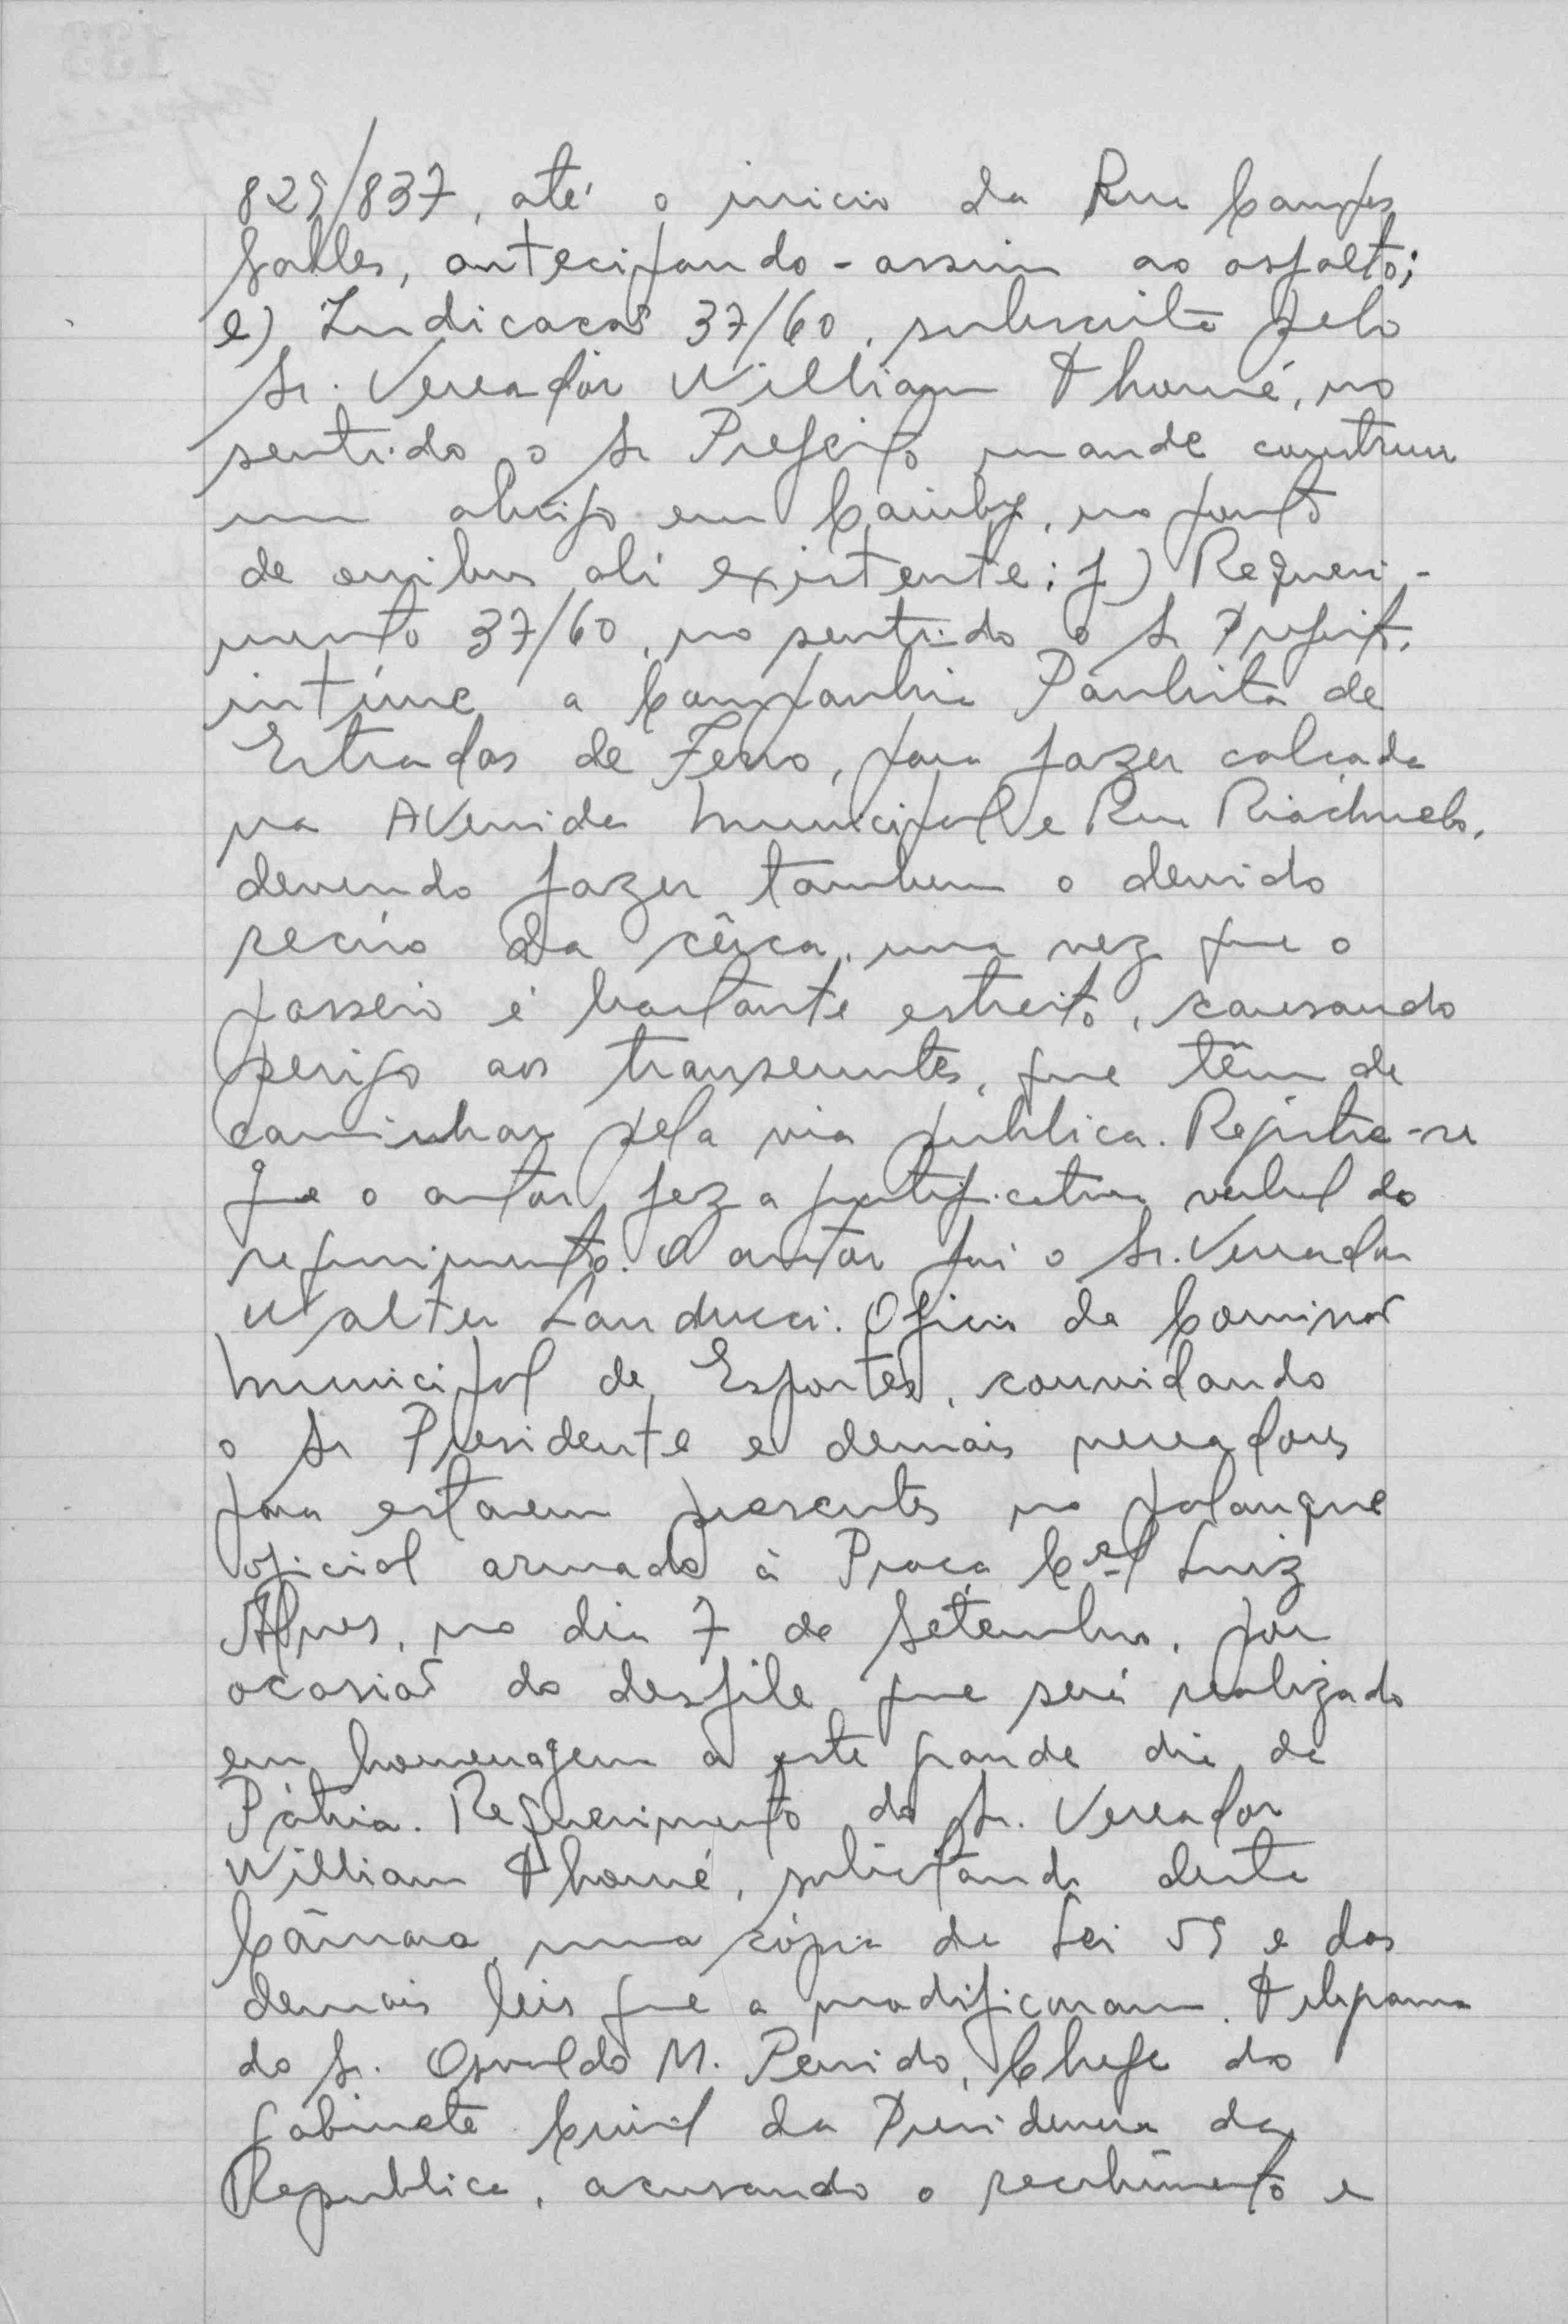 829/837, até o inicio da Rua Campos
Salles, antecipando-assim ao asfalto;
e) Indicacaõ 37/60, subscrita pelo
Sr. Vereador William Thomé, no
sentido o Sr Prefeito mande construir
um abrigo em Caiuby, no ponto
de onibus ali existente; f) Requeri-
mento 37/60, no sentido o Sr Prefeito,
intime a Companhia Paulista de
Estradas de Ferro, para fazer calçada
na Avenida Municipal e Rua Riachuelo,
devendo fazer tambem o devido
recúo da cêrca, uma vez que o
passeio é bastante estreito, causando
perigo aos transeuntes, que têm de
caminhar pela via publica. Registre-se
que o autor fez a justificativa verbal do
requerimento. O autor foi o Sr. Vereador
Walter Landucci. Oficio da Comissaõ
Municipal de Esportes, convidando
o Sr Presidente e demais vereadores
para estarem presentes no palanque
oficial armado à Praça Cel Luiz
Alves, no dia 7 de Setembro, por
ocasiaõ do desfile que será realizado
em homenagem a este grande dia da
Pátria. Requerimento do Sr. Vereador
William Thomé, solicitando desta
Câmara, uma cópia da Lei 59 e das
demais leis que a modificaram. Telegrama
do Sr. Osvaldo M. Penido, Chefe do
Gabinete Civil da Presidencia da
Republica, acusando o recebimento e